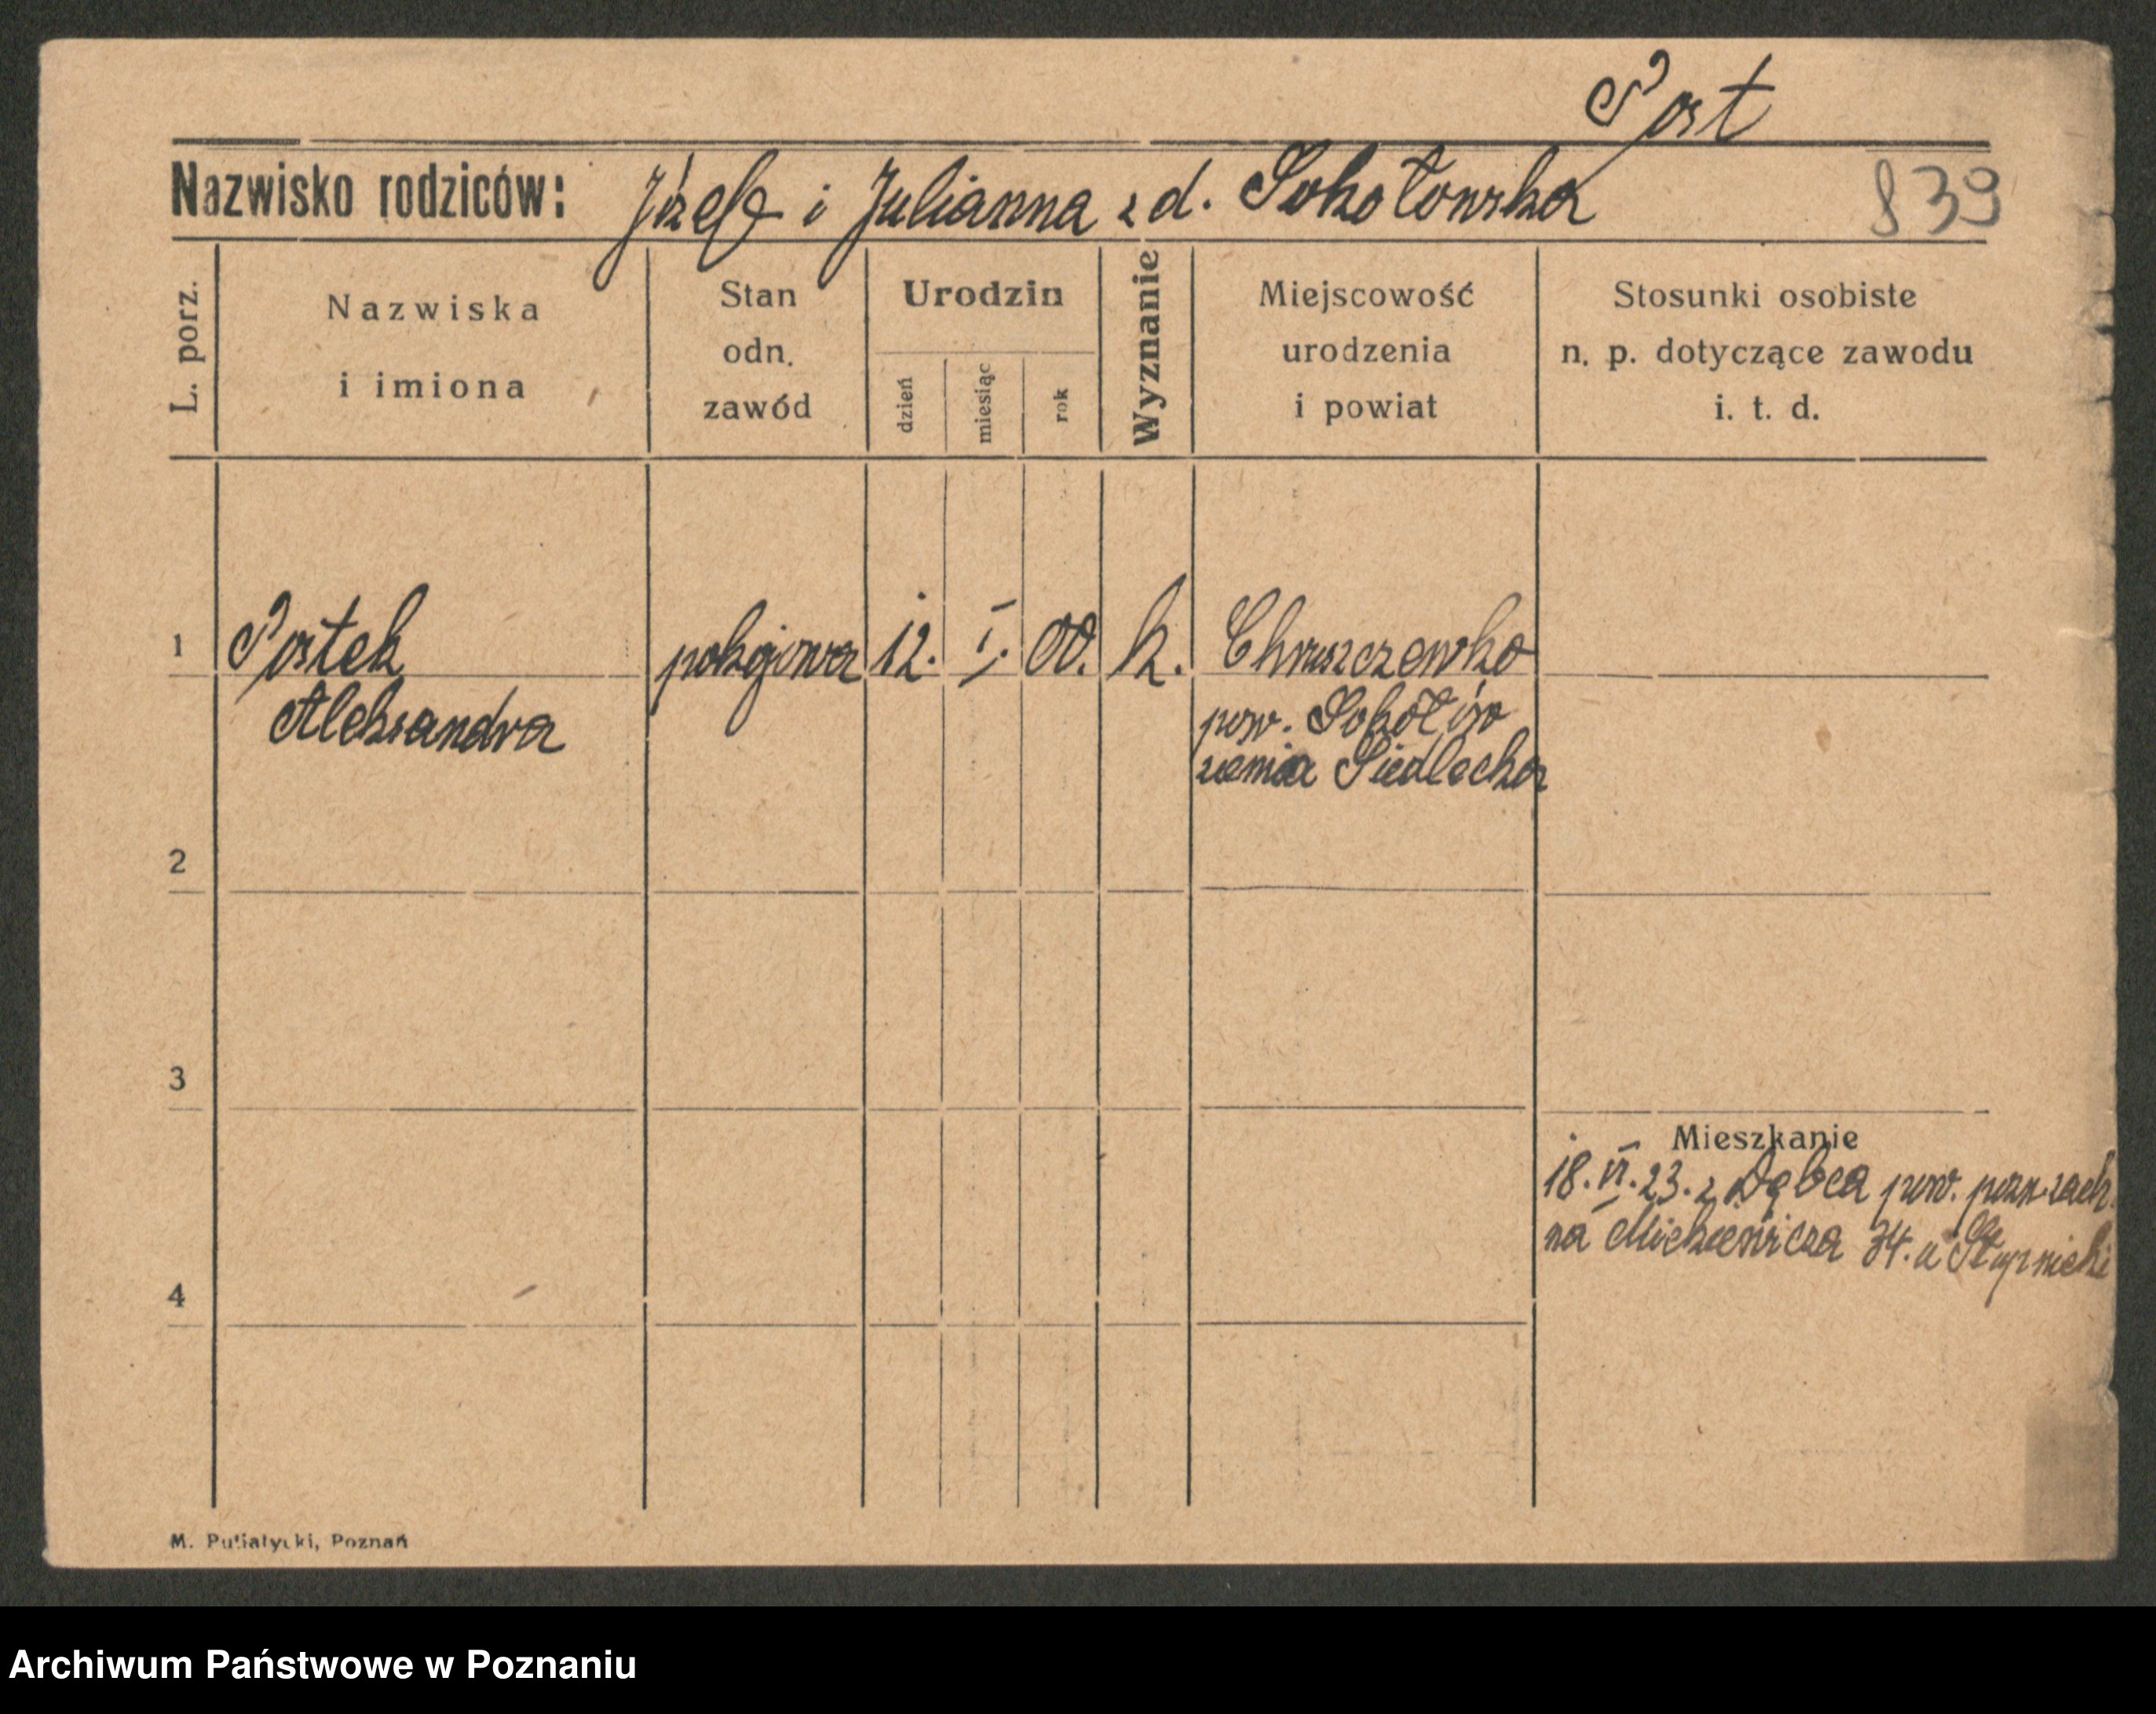 Post
Nazwisko rodziców: Józef i Julianna z d. Sokołowska 839
L. porz.
Nazwiska
i imiona
Stan
odn.
zawód
Urodzin
dzień
miesiąc
rok
Wyznanie
Miejscowość
urodzenia
i powiat
Stosunki osobiste
n. p. dotyczące zawodu
i. t. d.
1 Postek pokojowa 12. I. 00. k. Chruszczewko
Aleksandra pow. Sokołów
ziemia Siedlecka
2
3
Mieszkanie
18. VI. 23. z Dębca pow. pozn. zach.
na Mickiewicza 34. u
4
M. Putiatycki, Poznań
Archiwum Państwowe w Poznaniu